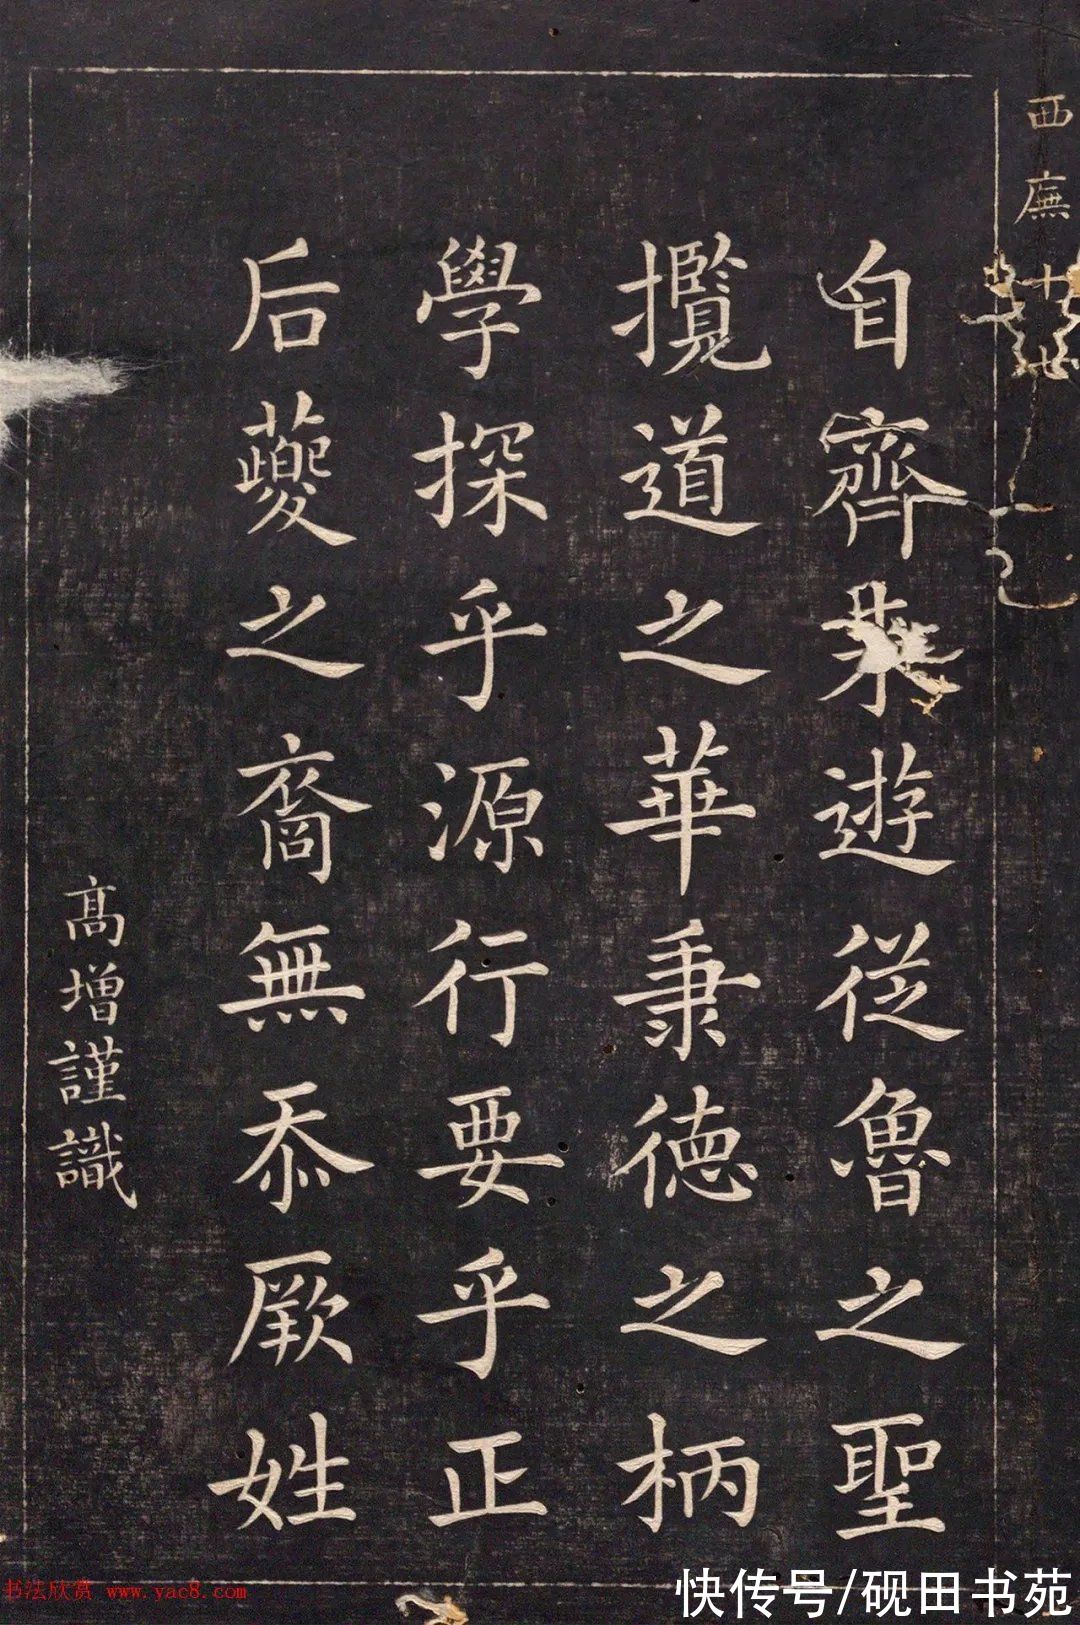 西廡十七
自齊來遊從魯之聖
攬道之華秉德之柄
學探乎源行要乎正
后夔之裔無忝厥姓
高增謹識
书法欣赏 www.yac8.com
快传号/砚田书苑